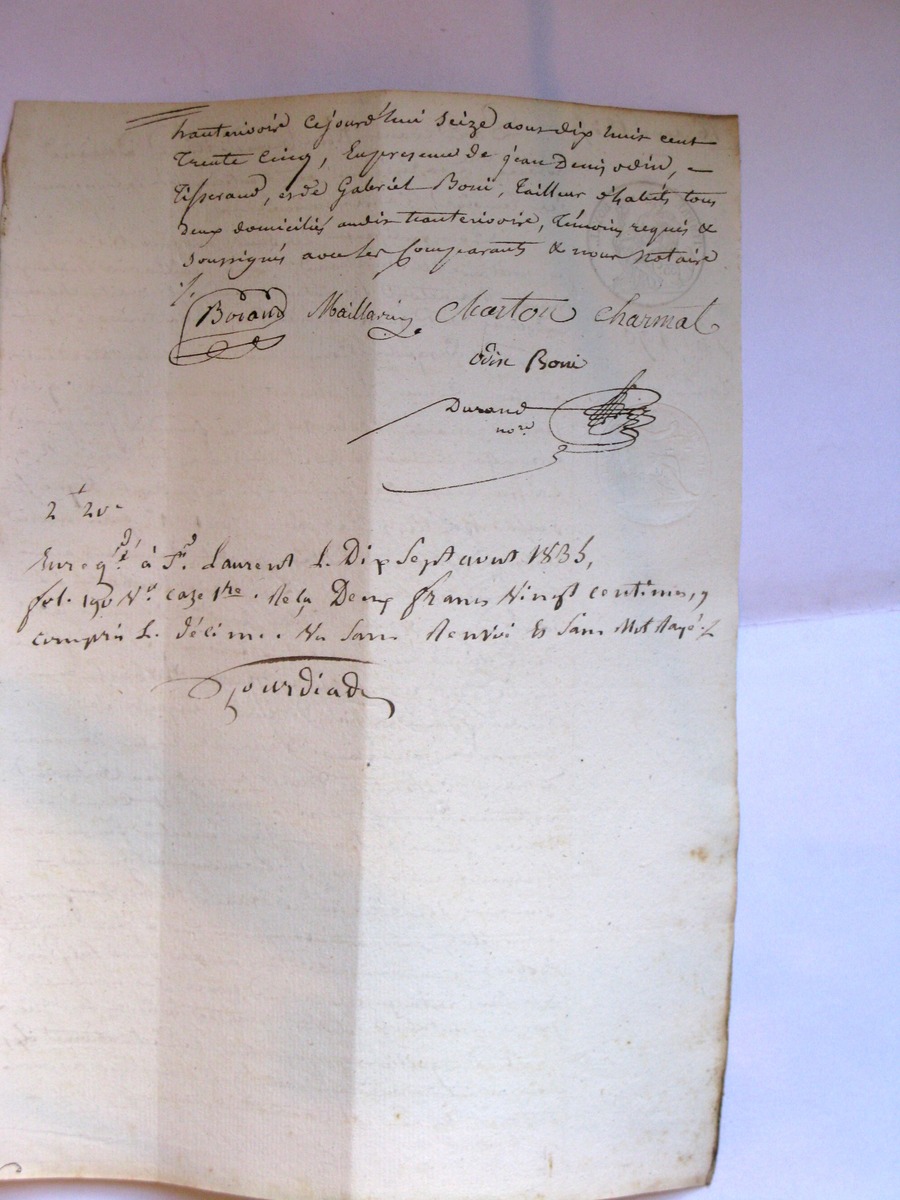 hauterivoire cejourd'hui seize aoust dix huit cent
trente cinq, en presence de jean Denis odin,
Tisserand, et de Gabriel Boni, Tailleur d'habits tous
deux domiciliés audit hauterivoire, témoins requis &
soussignés avec les comparants & nous Notaire
Boiand Maillavin Marton Charmat
odin Boni
Durand
nore
2f 20c
Enregd. à St. Laurent L. Dix Sept aout 1835,
fol. 190 Vo. caze 1re. Reçu Deux francs Vingt centimes, y
compris L. décime. Vu Sans Renvoi Et Sans Mot Rayé.
Gourdiad